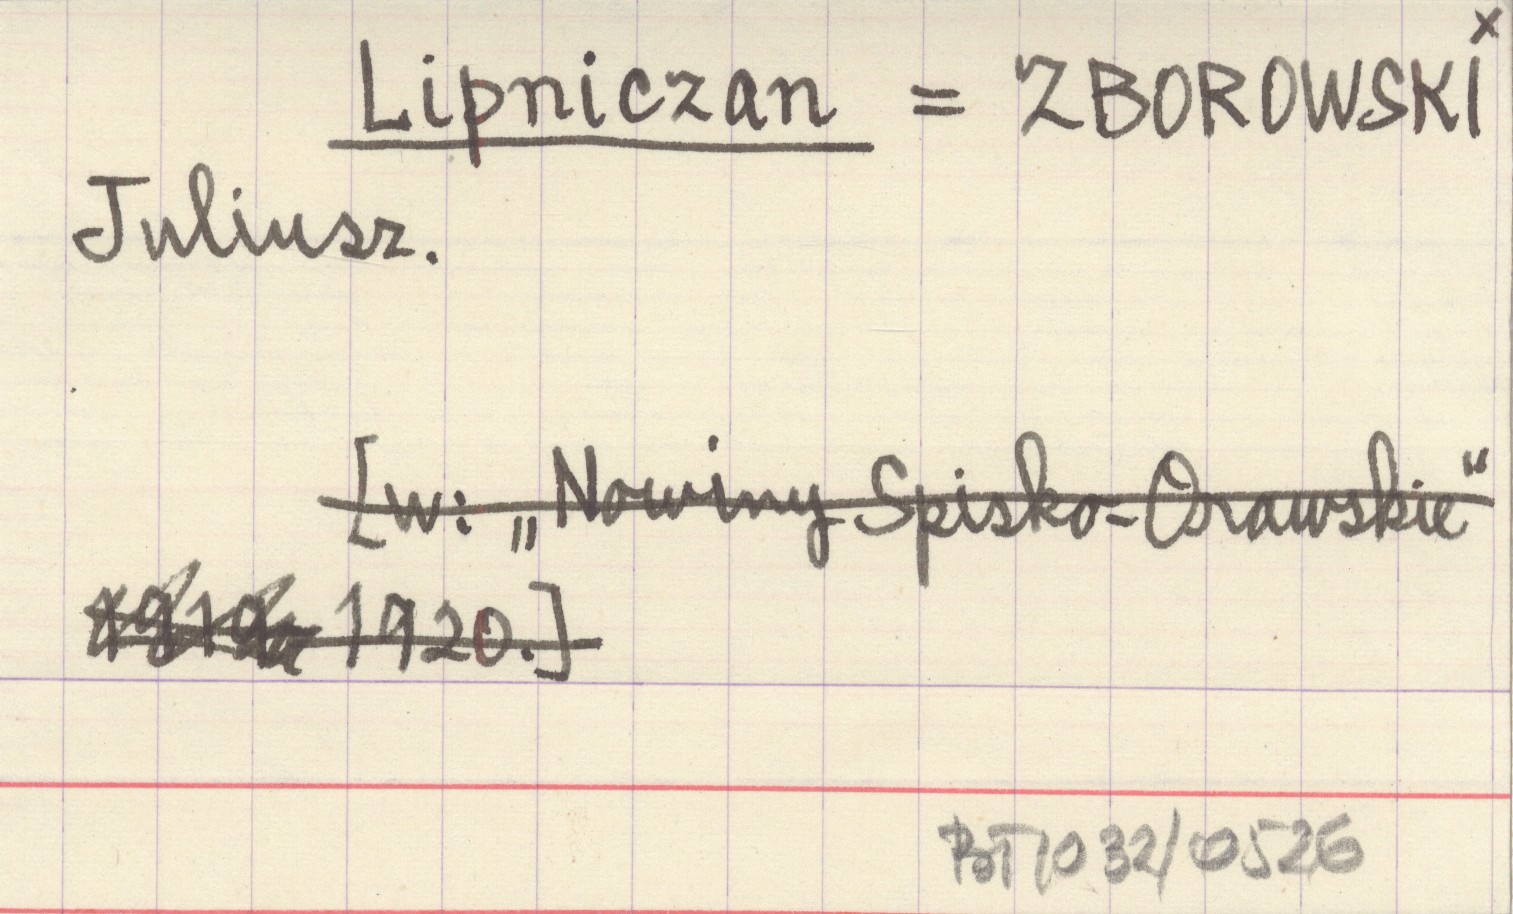 x
Lipniczan = ZBOROWSKI
Juliusz.
[w: „Nowiny Spisko-Orawskie“
1920.]
BT1032/0526